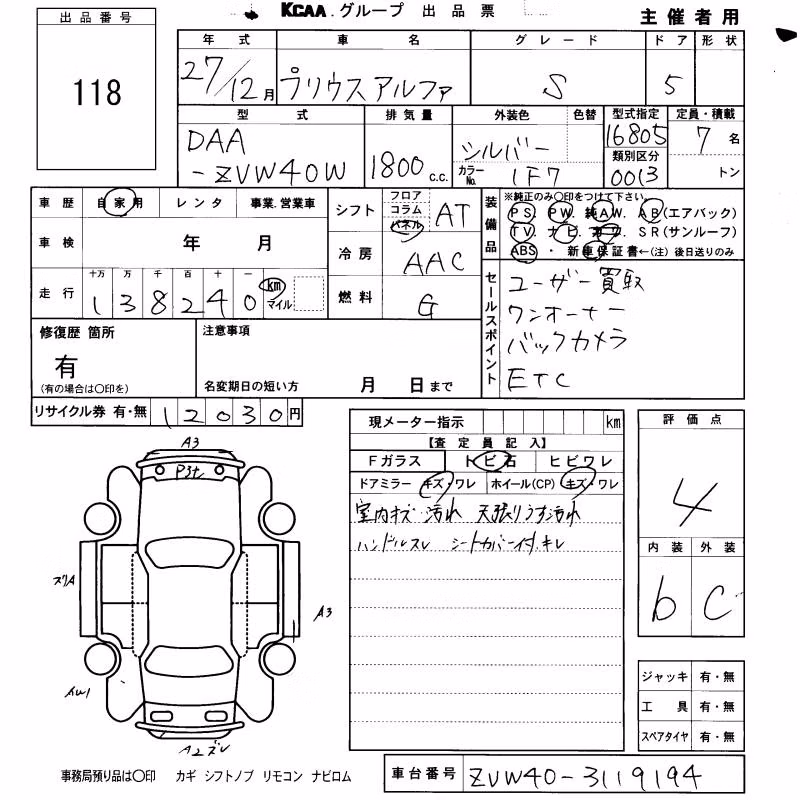 KCAA.グループ 出品票
主催者用
出品番号
118
年式 車名 グレード ドア 形状
27/12月 プリウスアルファ S 5
型式 排気量 外装色 色替 型式指定 定員・積載
DAA
-ZVW40W 1800 c.c. シルバー 16805 7名
カラーNo. 1F7 類別区分 0013 トン
車歴 自家用 レンタ 事業.営業車
車検 年 月
走行 十万 万 千 百 十 一
138240 km マイル
シフト フロア コラム パネル AT
冷房 AAC
燃料 G
装備品 ※純正のみ○印をつけて下さい。
PS. PW. 純AW. AB(エアバック)
TV. ナビ. カワ. SR(サンルーフ)
ABS ・ 新車保証書←(注)後日送りのみ
セールスポイント
ユーザー買取
ワンオーナー
バックカメラ
ETC
修復歴 箇所
有
(有の場合は○印を)
注意事項
名変期日の短い方 月 日まで
リサイクル券 有・無 12030円
現メーター指示 km
【査定員記入】
Fガラス トビ石 ヒビワレ
ドアミラー キズ・ワレ ホイール(CP) キズ・ワレ
室内キズ 汚れ 天張りうす汚れ
ハンドルスレ シートカバー付.キレ
評価点
4
内装 外装
b C
A3
P3t
ズリA
A3
AW1
A2ズレ
ジャッキ 有・無
工具 有・無
スペアタイヤ 有・無
事務局預り品は○印 カギ シフトノブ リモコン ナビロム
車台番号 ZVW40-3119194